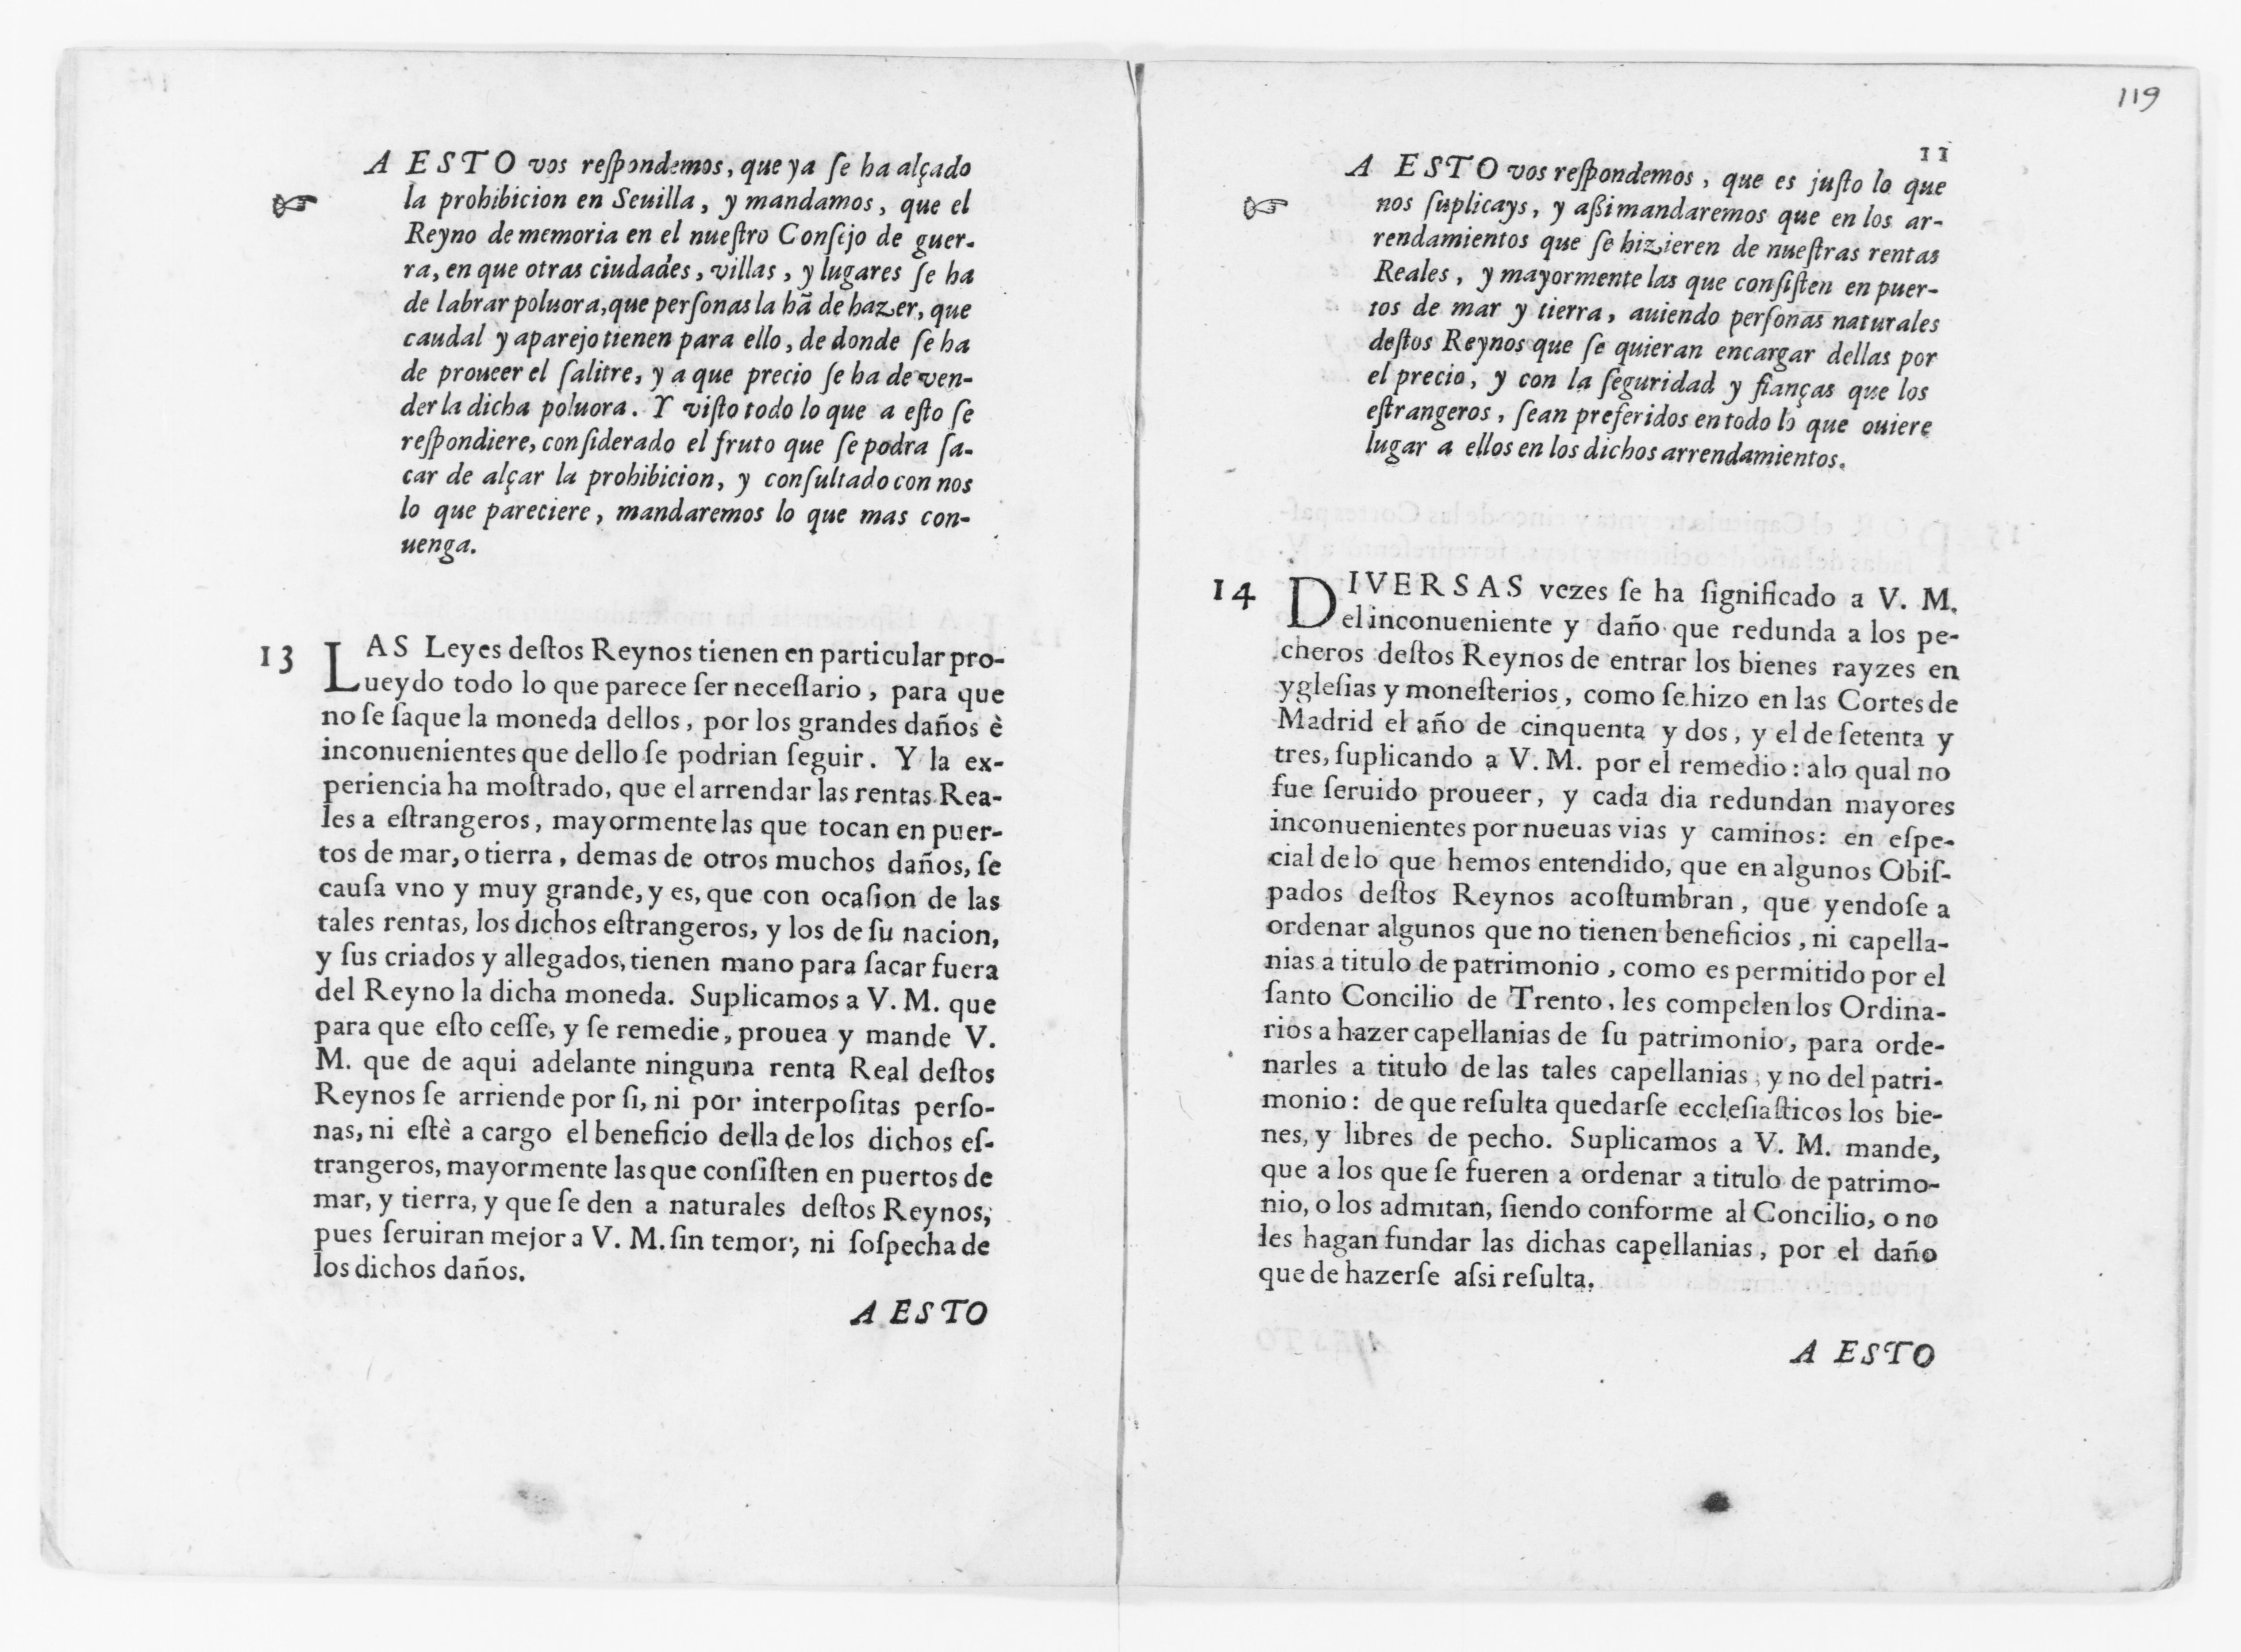 A ESTO vos reſpondemos, que ya ſe ha alçado
la prohibicion en Seuilla, y mandamos, que el
Reyno de memoria en el nueſtro Conſejo de guer-
ra, en que otras ciudades, villas, y lugares ſe ha
de labrar poluora, que perſonas la hã de hazer, que
caudal y aparejo tienen para ello, de donde ſe ha
de proueer el ſalitre, y a que precio ſe ha de ven-
der la dicha poluora. Y viſto todo lo que a eſto ſe
reſpondiere, conſiderado el fruto que ſe podra ſa-
car de alçar la prohibicion, y conſultado con nos
lo que pareciere, mandaremos lo que mas con-
uenga.
13 LAS Leyes deſtos Reynos tienen en particular pro-
ueydo todo lo que parece ſer neceſſario, para que
no ſe ſaque la moneda dellos, por los grandes daños è
inconuenientes que dello ſe podrian ſeguir. Y la ex-
periencia ha moſtrado, que el arrendar las rentas Rea-
les a eſtrangeros, mayormente las que tocan en puer-
tos de mar, o tierra, demas de otros muchos daños, ſe
cauſa vno y muy grande, y es, que con ocaſion de las
tales rentas, los dichos eſtrangeros, y los de ſu nacion,
y ſus criados y allegados, tienen mano para ſacar fuera
del Reyno la dicha moneda. Suplicamos a V. M. que
para que eſto ceſſe, y ſe remedie, prouea y mande V.
M. que de aqui adelante ninguna renta Real deſtos
Reynos ſe arriende por ſi, ni por interpoſitas perſo-
nas, ni eſtè a cargo el beneficio della de los dichos eſ-
trangeros, mayormente las que conſiſten en puertos de
mar, y tierra, y que ſe den a naturales deſtos Reynos,
pues ſeruiran mejor a V. M. ſin temor, ni ſoſpecha de
los dichos daños.
A ESTO
119
11
A ESTO vos reſpondemos, que es juſto lo que
nos ſuplicays, y aßi mandaremos que en los ar-
rendamientos que ſe hizieren de nueſtras rentas
Reales, y mayormente las que conſiſten en puer-
tos de mar y tierra, auiendo perſonas naturales
deſtos Reynos que ſe quieran encargar dellas por
el precio, y con la ſeguridad y fianças que los
eſtrangeros, ſean preferidos en todo lo que ouiere
lugar a ellos en los dichos arrendamientos.
14 DIVERSAS vezes ſe ha ſignificado a V. M.
el inconueniente y daño que redunda a los pe-
cheros deſtos Reynos de entrar los bienes rayzes en
ygleſias y moneſterios, como ſe hizo en las Cortes de
Madrid el año de cinquenta y dos, y el de ſetenta y
tres, ſuplicando a V. M. por el remedio: a lo qual no
fue ſeruido proueer, y cada dia redundan mayores
inconuenientes por nueuas vias y caminos: en eſpe-
cial de lo que hemos entendido, que en algunos Obiſ-
pados deſtos Reynos acoſtumbran, que yendoſe a
ordenar algunos que no tienen beneficios, ni capella-
nias a titulo de patrimonio, como es permitido por el
ſanto Concilio de Trento, les compelen los Ordina-
rios a hazer capellanias de ſu patrimonio, para orde-
narles a titulo de las tales capellanias, y no del patri-
monio: de que reſulta quedarſe eccleſiaſticos los bie-
nes, y libres de pecho. Suplicamos a V. M. mande,
que a los que ſe fueren a ordenar a titulo de patrimo-
nio, o los admitan, ſiendo conforme al Concilio, o no
les hagan fundar las dichas capellanias, por el daño
que de hazerſe aſsi reſulta.
A ESTO